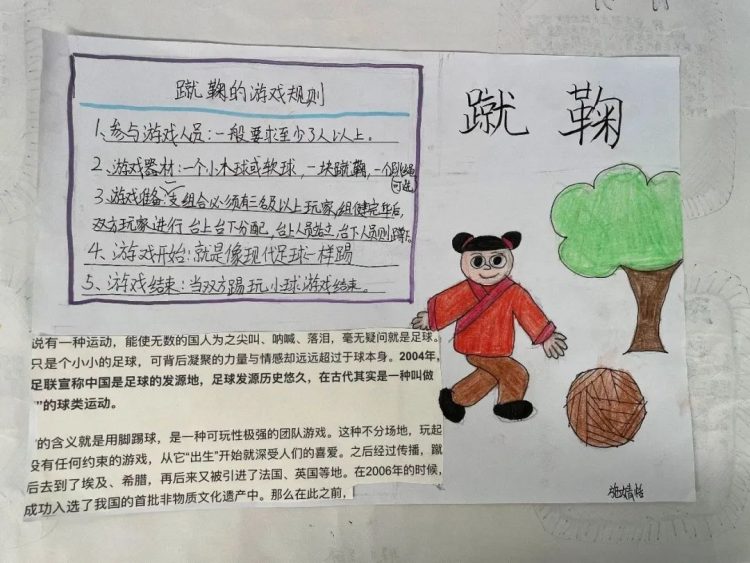 蹴鞠
蹴鞠的游戏规则
1、参与游戏人员:一般要求至少3人以上。
2、游戏器材:一个小木球或软球,一块蹴鞠,一个
可选
3、游戏准备:支组合必须有三名及以上玩家,组健完毕后,
双方玩家进行台上台下分配,台上人员站立,台下人员则蹲下。
4、游戏开始:就是像现代足球一样踢
5、游戏结束:当双方踢玩小球游戏结束。
说有一种运动,能使无数的国人为之尖叫、呐喊、落泪,毫无疑问就是足球。
只是个小小的足球,可背后凝聚的力量与情感却远远超过于球本身。2004年,
足联宣称中国是足球的发源地,足球发源历史悠久,在古代其实是一种叫做
”的球类运动。
”的含义就是用脚踢球,是一种可玩性极强的团队游戏。这种不分场地,玩起
没有任何约束的游戏,从它“出生”开始就深受人们的喜爱。之后经过传播,蹴
后去到了埃及、希腊,再后来又被引进了法国、英国等地。在2006年的时候,
成功入选了我国的首批非物质文化遗产中。那么在此之前,